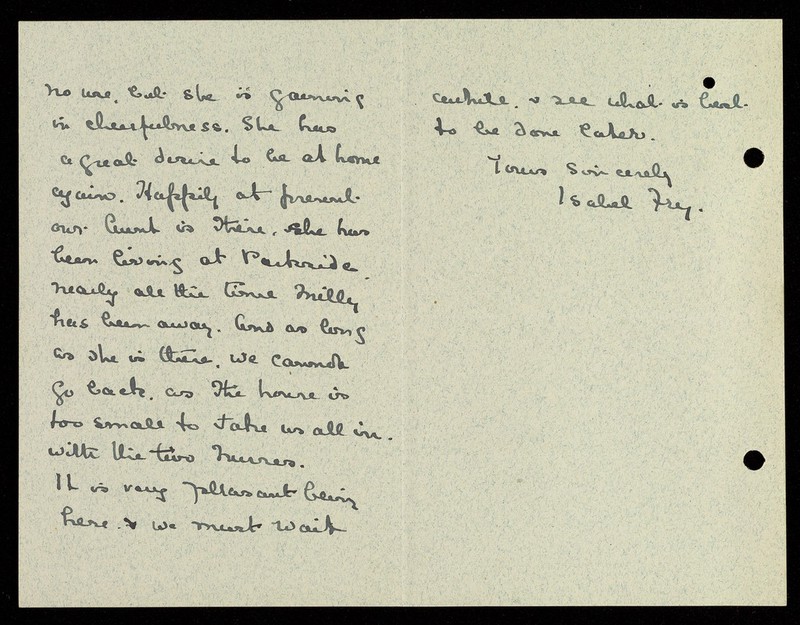 no use, but she is gaining
in cheerfulness. She has
a great desire to be at home
again. Happily at present
our Aunt is there, she has
been living at Parkside
nearly all the time Milly
has been away. And as long
as she is there, we cannot
go back, as the house is
too small to take us all in.
with the two Nurses.
It is very pleasant being
here. & we must wait
awhile. & see what is best
to be done later.
Yours sincerely
Isabel Frey.